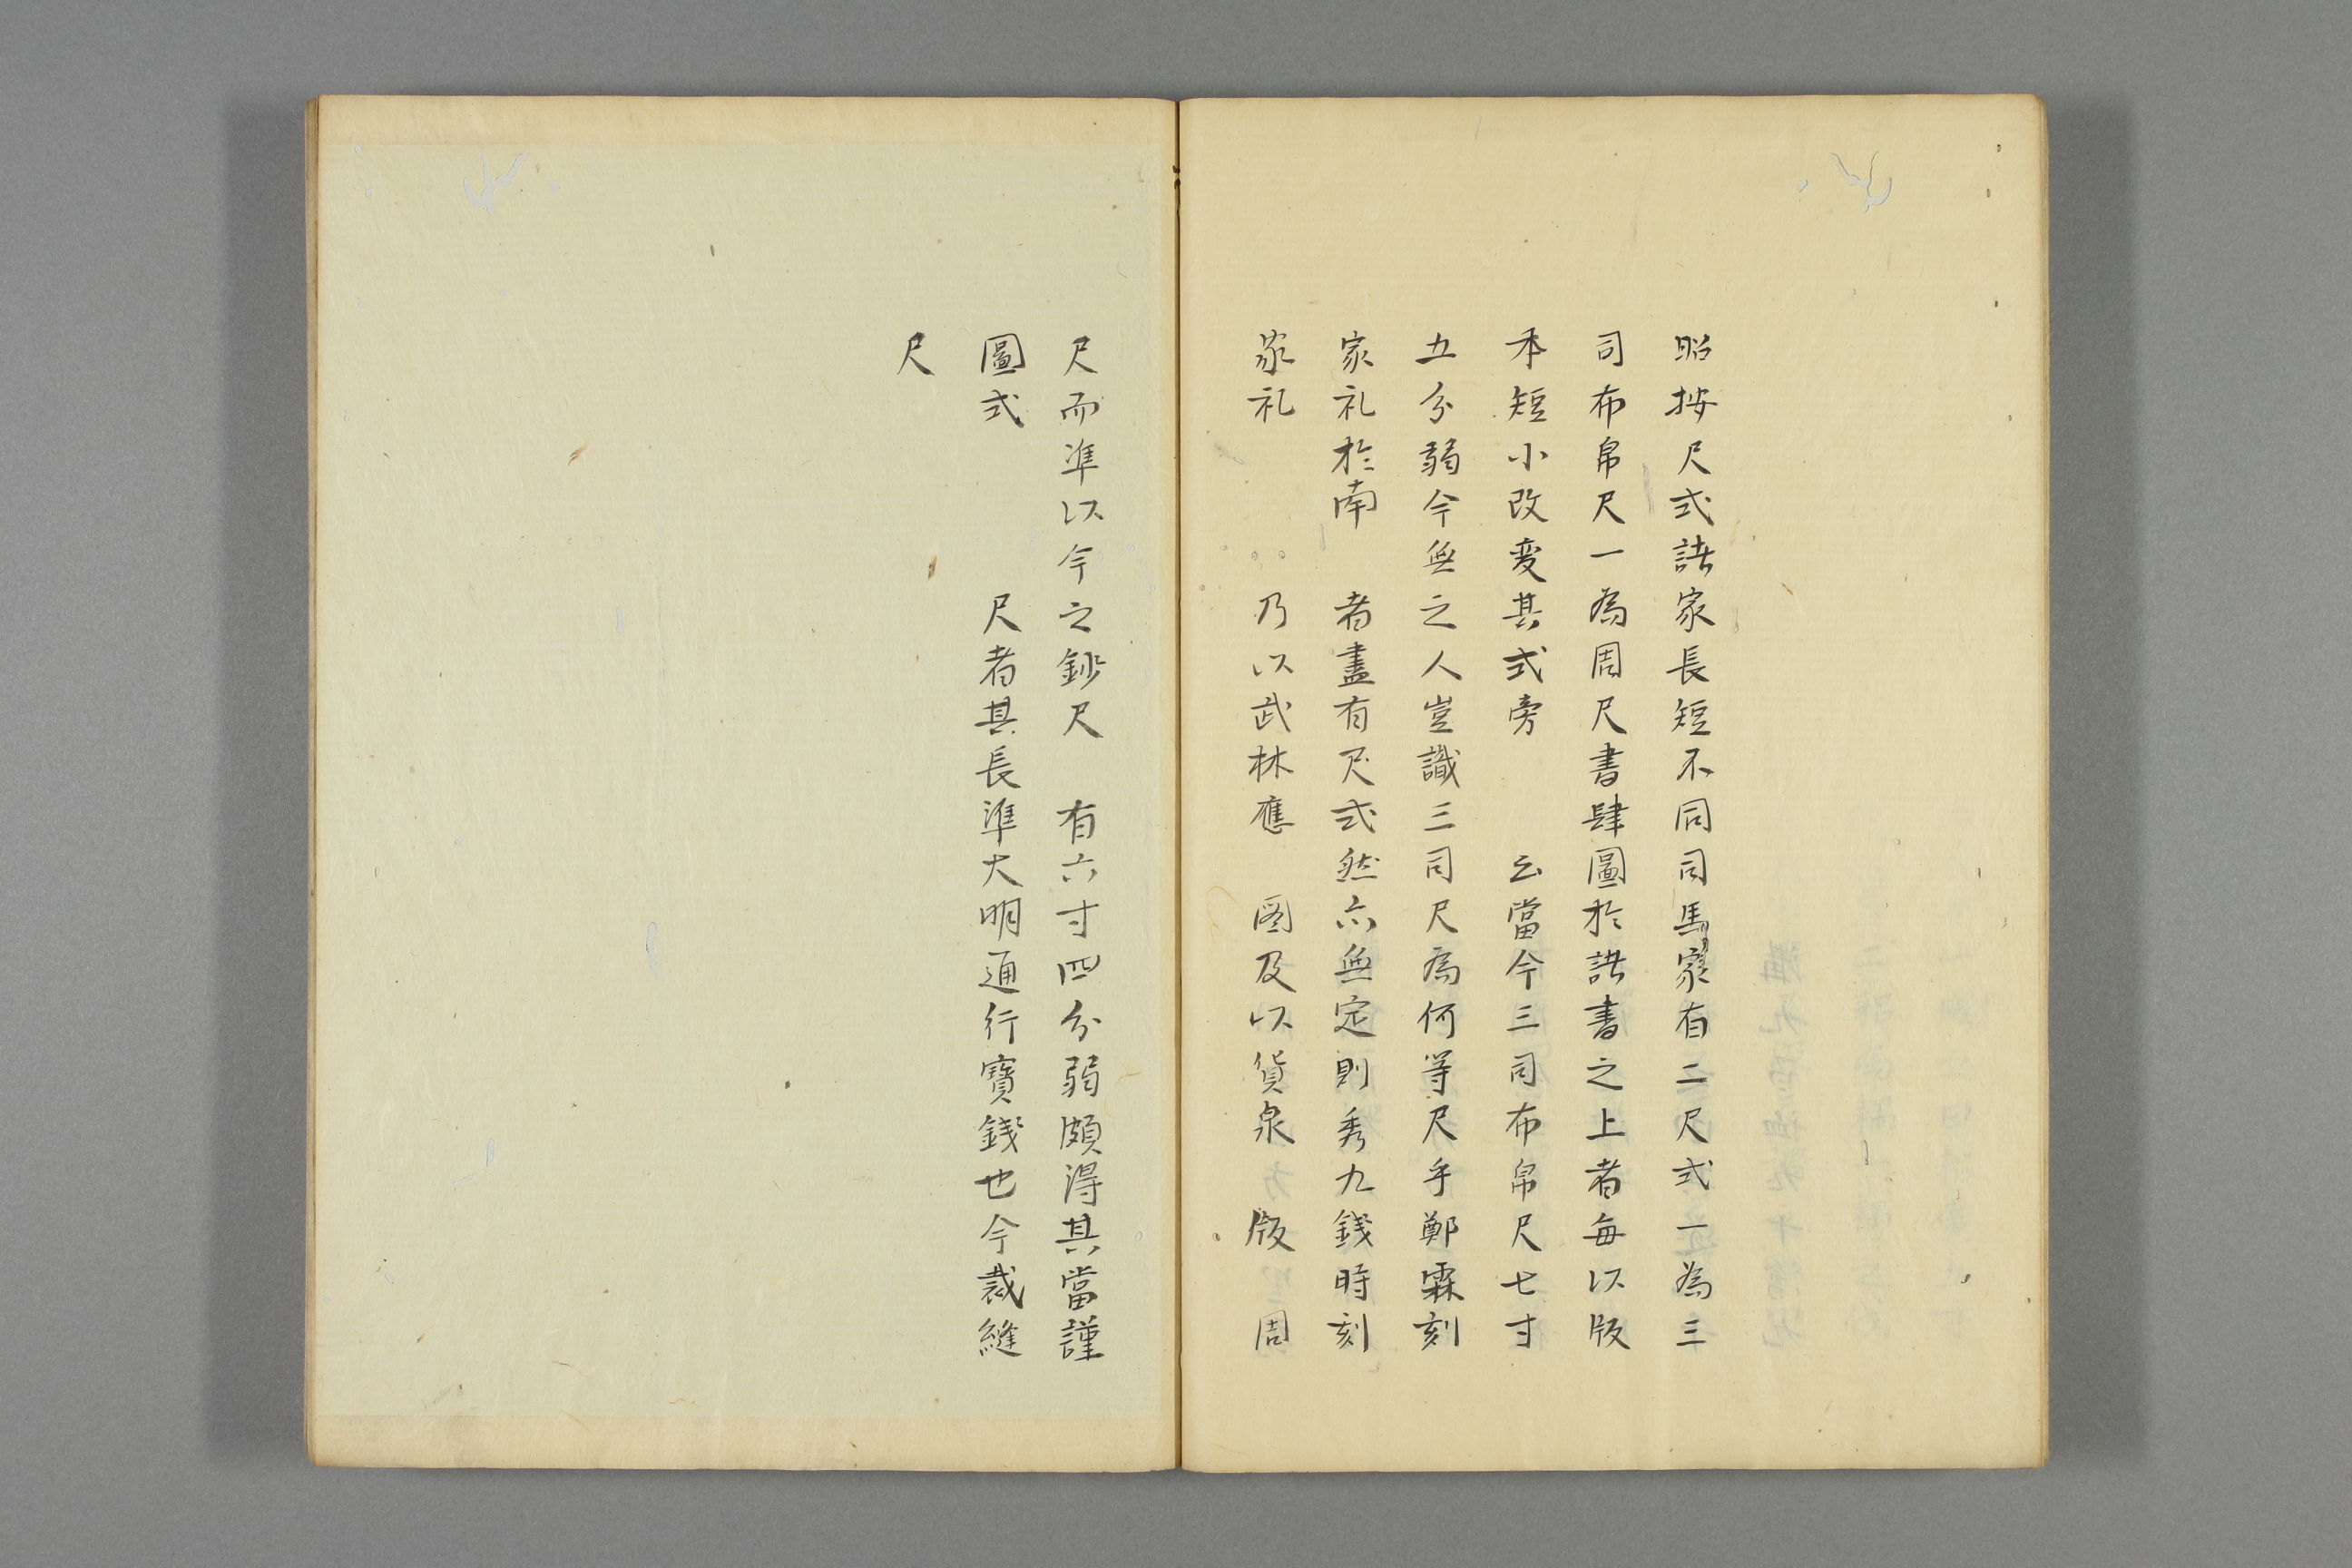 昭按尺式諸家長短不同司馬家有二尺式一為三
司布帛尺一為周尺書肆圖於諸書之上者毎以版
本短小改变其式旁　　云當今三司布帛尺七寸
五分弱今無之人豈識三司尺為何等尺乎鄭霖刻
家礼於南　者盡有尺式然亦無定則秀九錢時刻
家礼　　　乃以武林應　图及以貨泉　版　周
尺而準以今之鈔尺　有六寸四分弱頗得其當謹
圖式　　　尺者其長準大明通行寶錢也今裁縫
尺